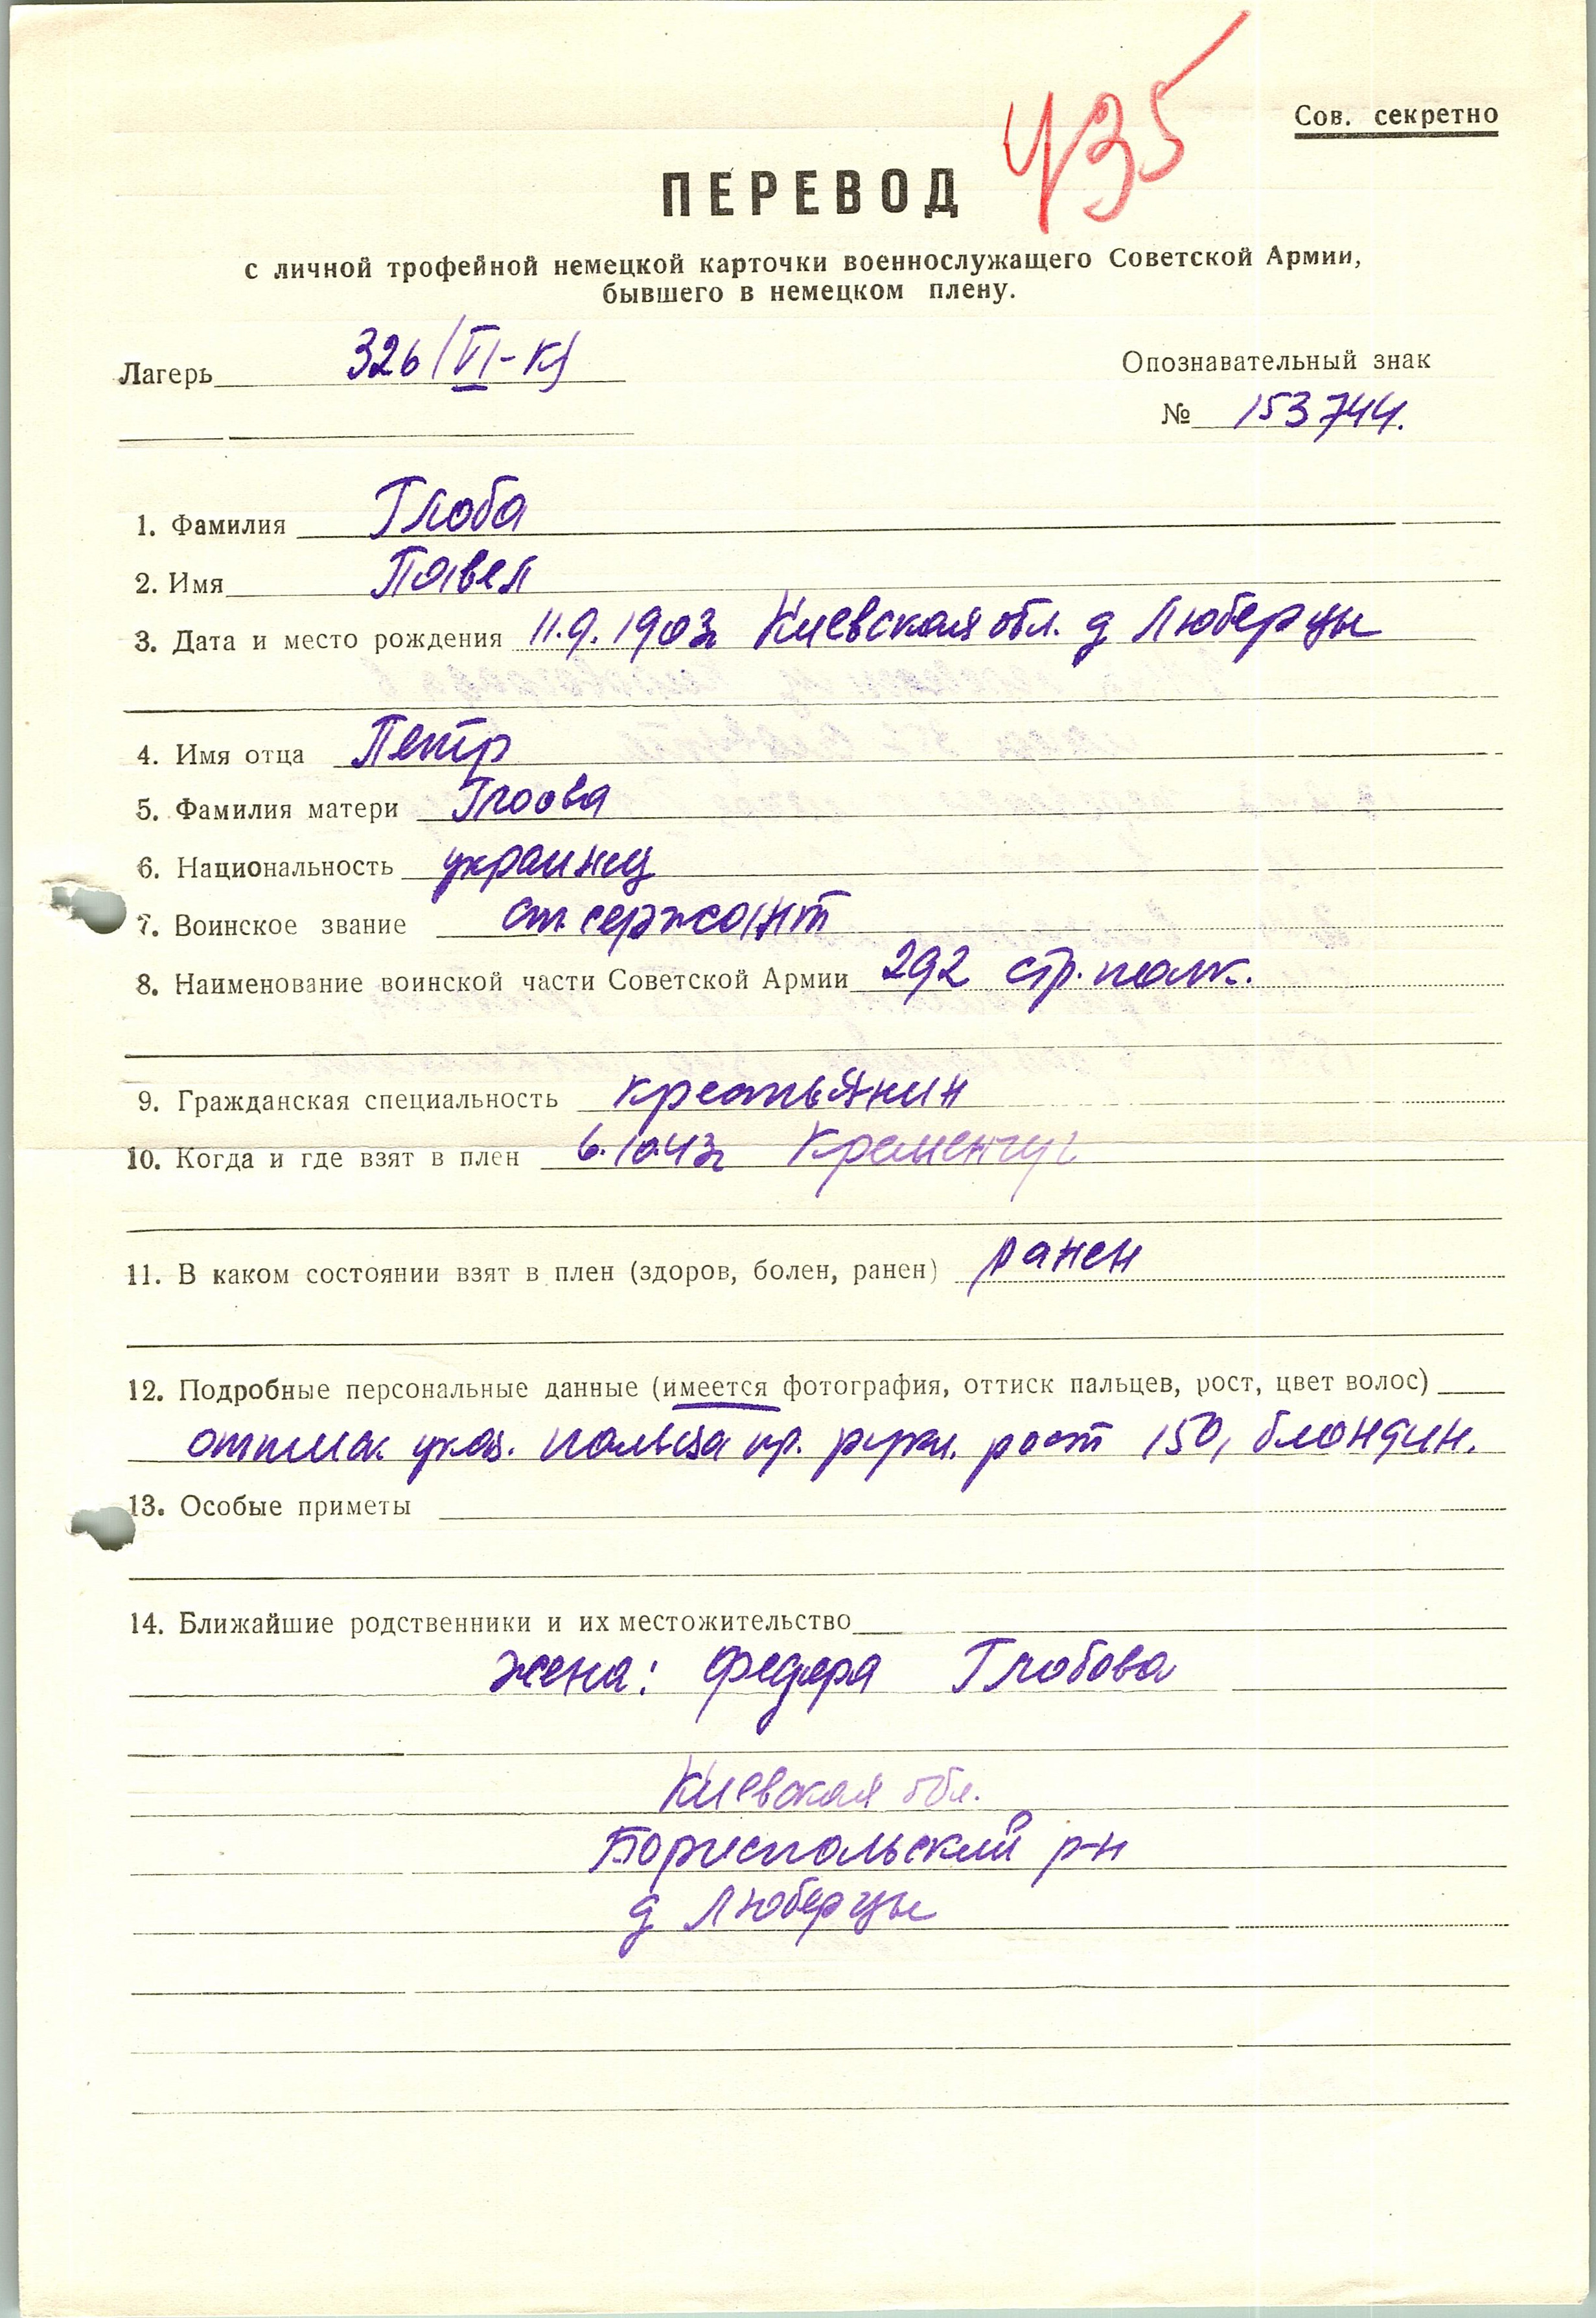 435
Сов. секретно
ПЕРЕВОД
с личной трофейной немецкой карточки военнослужащего Советской Армии,
бывшего в немецком плену.
Лагерь 326 (VI-К)
Опознавательный знак
№ 153744.
1. Фамилия Глоба
2. Имя Павел
3. Дата и место рождения 11.9.1903г Киевская обл. д Люберцы
4. Имя отца Петр
5. Фамилия матери Глоова
6. Национальность украинец
7. Воинское звание ст. сержант
8. Наименование воинской части Советской Армии 292 стр. полк.
9. Гражданская специальность крестьянин
10. Когда и где взят в плен 6.10.43г Кременчуг
11. В каком состоянии взят в плен (здоров, болен, ранен) ранен
12. Подробные персональные данные (имеется фотография, оттиск пальцев, рост, цвет волос)
оттиск указ. пальца пр. руки. рост 150, блондин.
13. Особые приметы
14. Ближайшие родственники и их местожительство
жена: Федора Глобова
Киевская обл.
Бориспольский р-н
д Люберцы